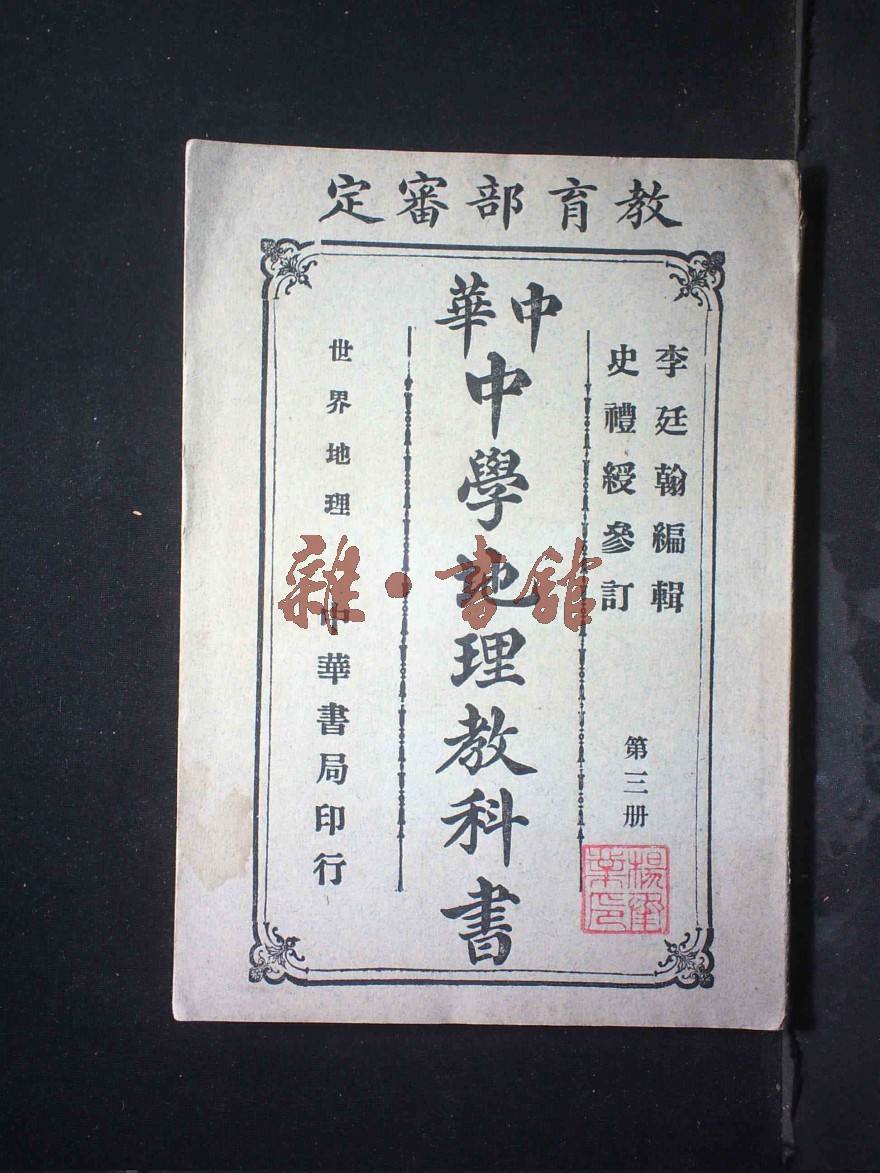 教育部審定
李廷翰編輯
史禮綬參訂
第三册
中華
中學地理教科書
世界地理
中華書局印行
雜·書館